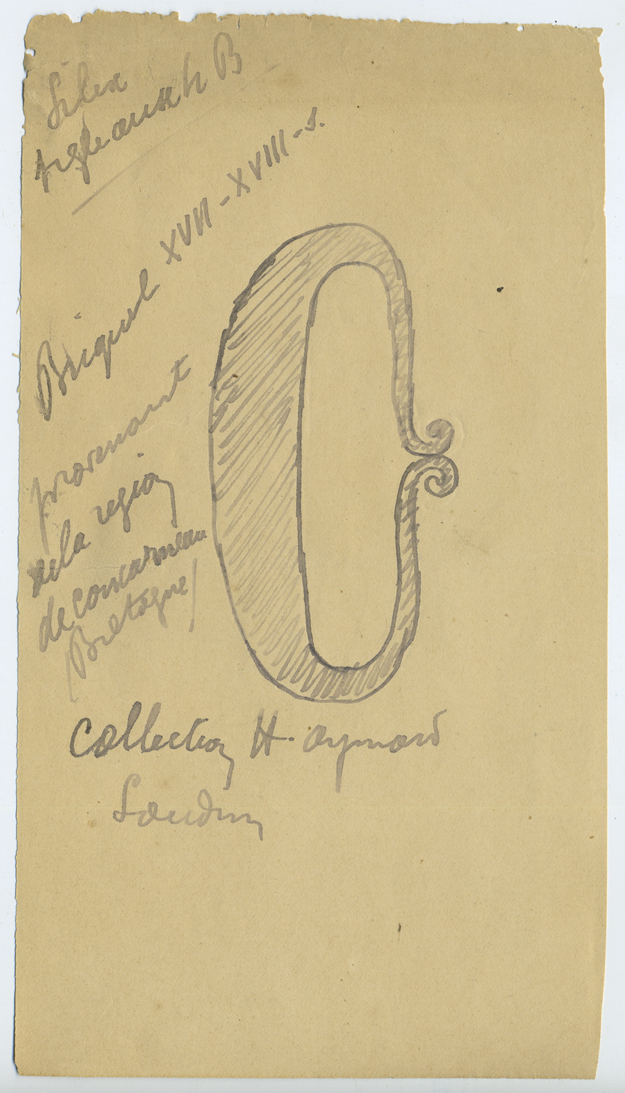 Silex
B
Briquet XVII - XVIII - s.
provenant
de la region
de concarneau
(Bretagne)
Collection H. Aymard
Loudun